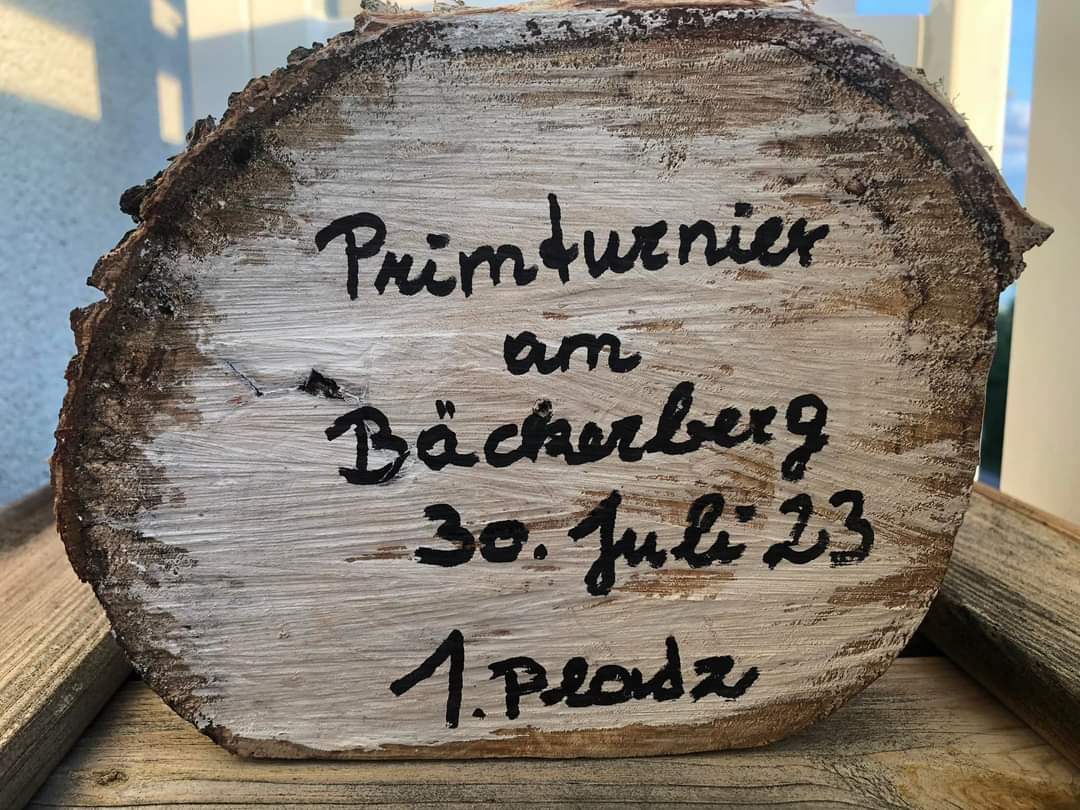 Primturnier
am
Bäckerberg
30. Juli 23
1. Platz